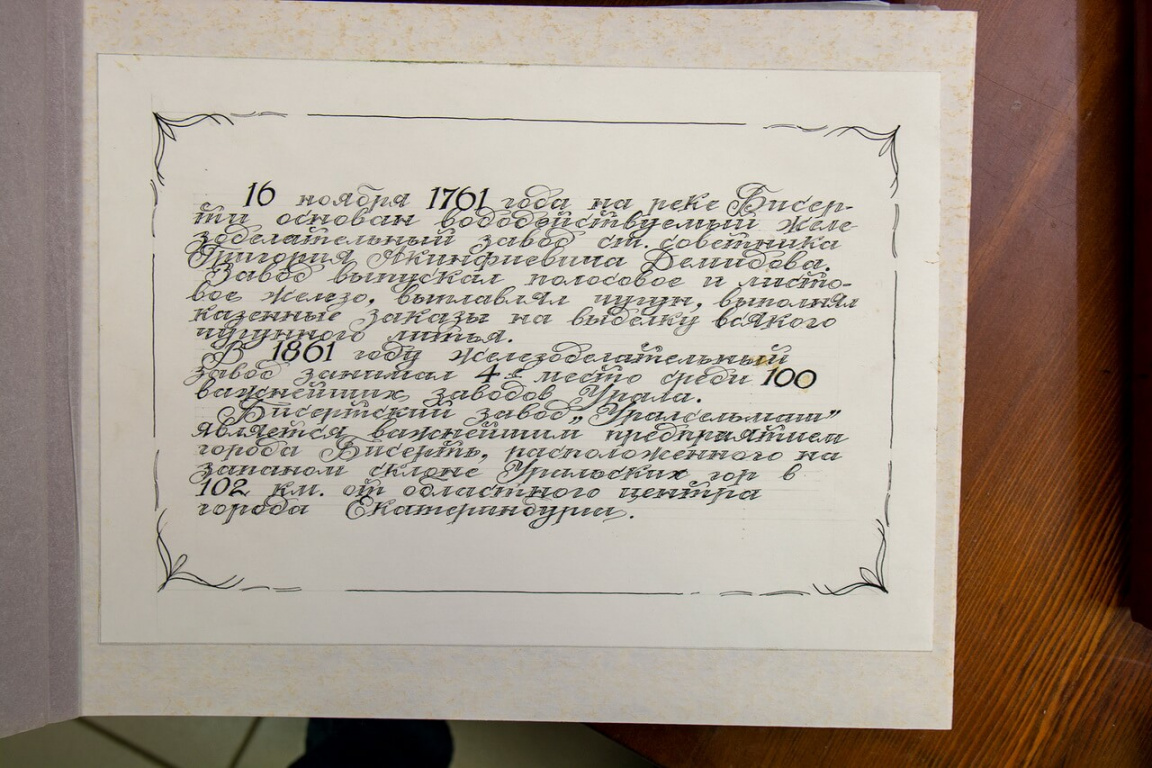 16 ноября 1761 года на реке Бисер-
ти основан вододействуемый желе
зоделательный завод ст. советника
Григория Акинфиевича Демидова.
Завод выпускал полосовое и листо-
вое железо, выплавлял чугун, выполнял
казенные заказы на выделку всякого
чугунного литья.
В 1861 году железоделательный
завод занимал 4-е место среди 100
важнейших заводов Урала.
Бисертский завод „Уралсельмаш”
является важнейшим предприятием
города Бисерть, расположенного на
западном склоне Уральских гор в
102 км. от областного центра
города Екатеринбурга.